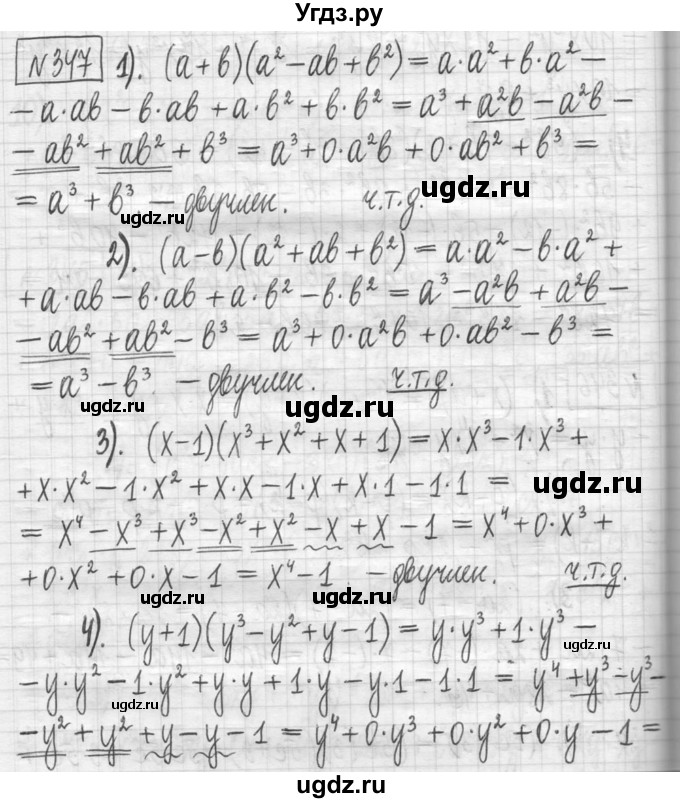 Угдз.ру
№347 1). (a+b)(a²-ab+b²)=a·a²+b·a²-
-a·ab-b·ab+a·b²+b·b²=a³+a²b-a²b-
-ab²+ab²+b³=a³+0·a²b+0·ab²+b³=
ugdz.ru
=a³+b³ - двучлен. ч.т.д.
ugdz.ru
2). (a-b)(a²+ab+b²)=a·a²-b·a²+
+a·ab-b·ab+a·b²-b·b²=a³-a²b+a²b-
-ab²+ab²-b³=a³+0·a²b+0·ab²-b³=
=a³-b³ - двучлен. ч.т.д.
ugdz.ru
ugdz.ru
3). (x-1)(x³+x²+x+1)=x·x³-1·x³+
+x·x²-1·x²+x·x-1·x+x·1-1·1=
ugdz.ru
=x⁴-x³+x³-x²+x²-x+x-1=x⁴+0·x³+
+0·x²+0·x-1=x⁴-1 - двучлен. ч.т.д.
ugdz.ru
ugdz.ru
4). (y+1)(y³-y²+y-1)=y·y³+1·y³-
ugdz.ru
-y·y²-1·y²+y·y+1·y-y·1-1·1=y⁴+y³-y³-
ugdz.ru
-y²+y²+y-y-1=y⁴+0·y³+0·y²+0·y-1=
ugdz.ru